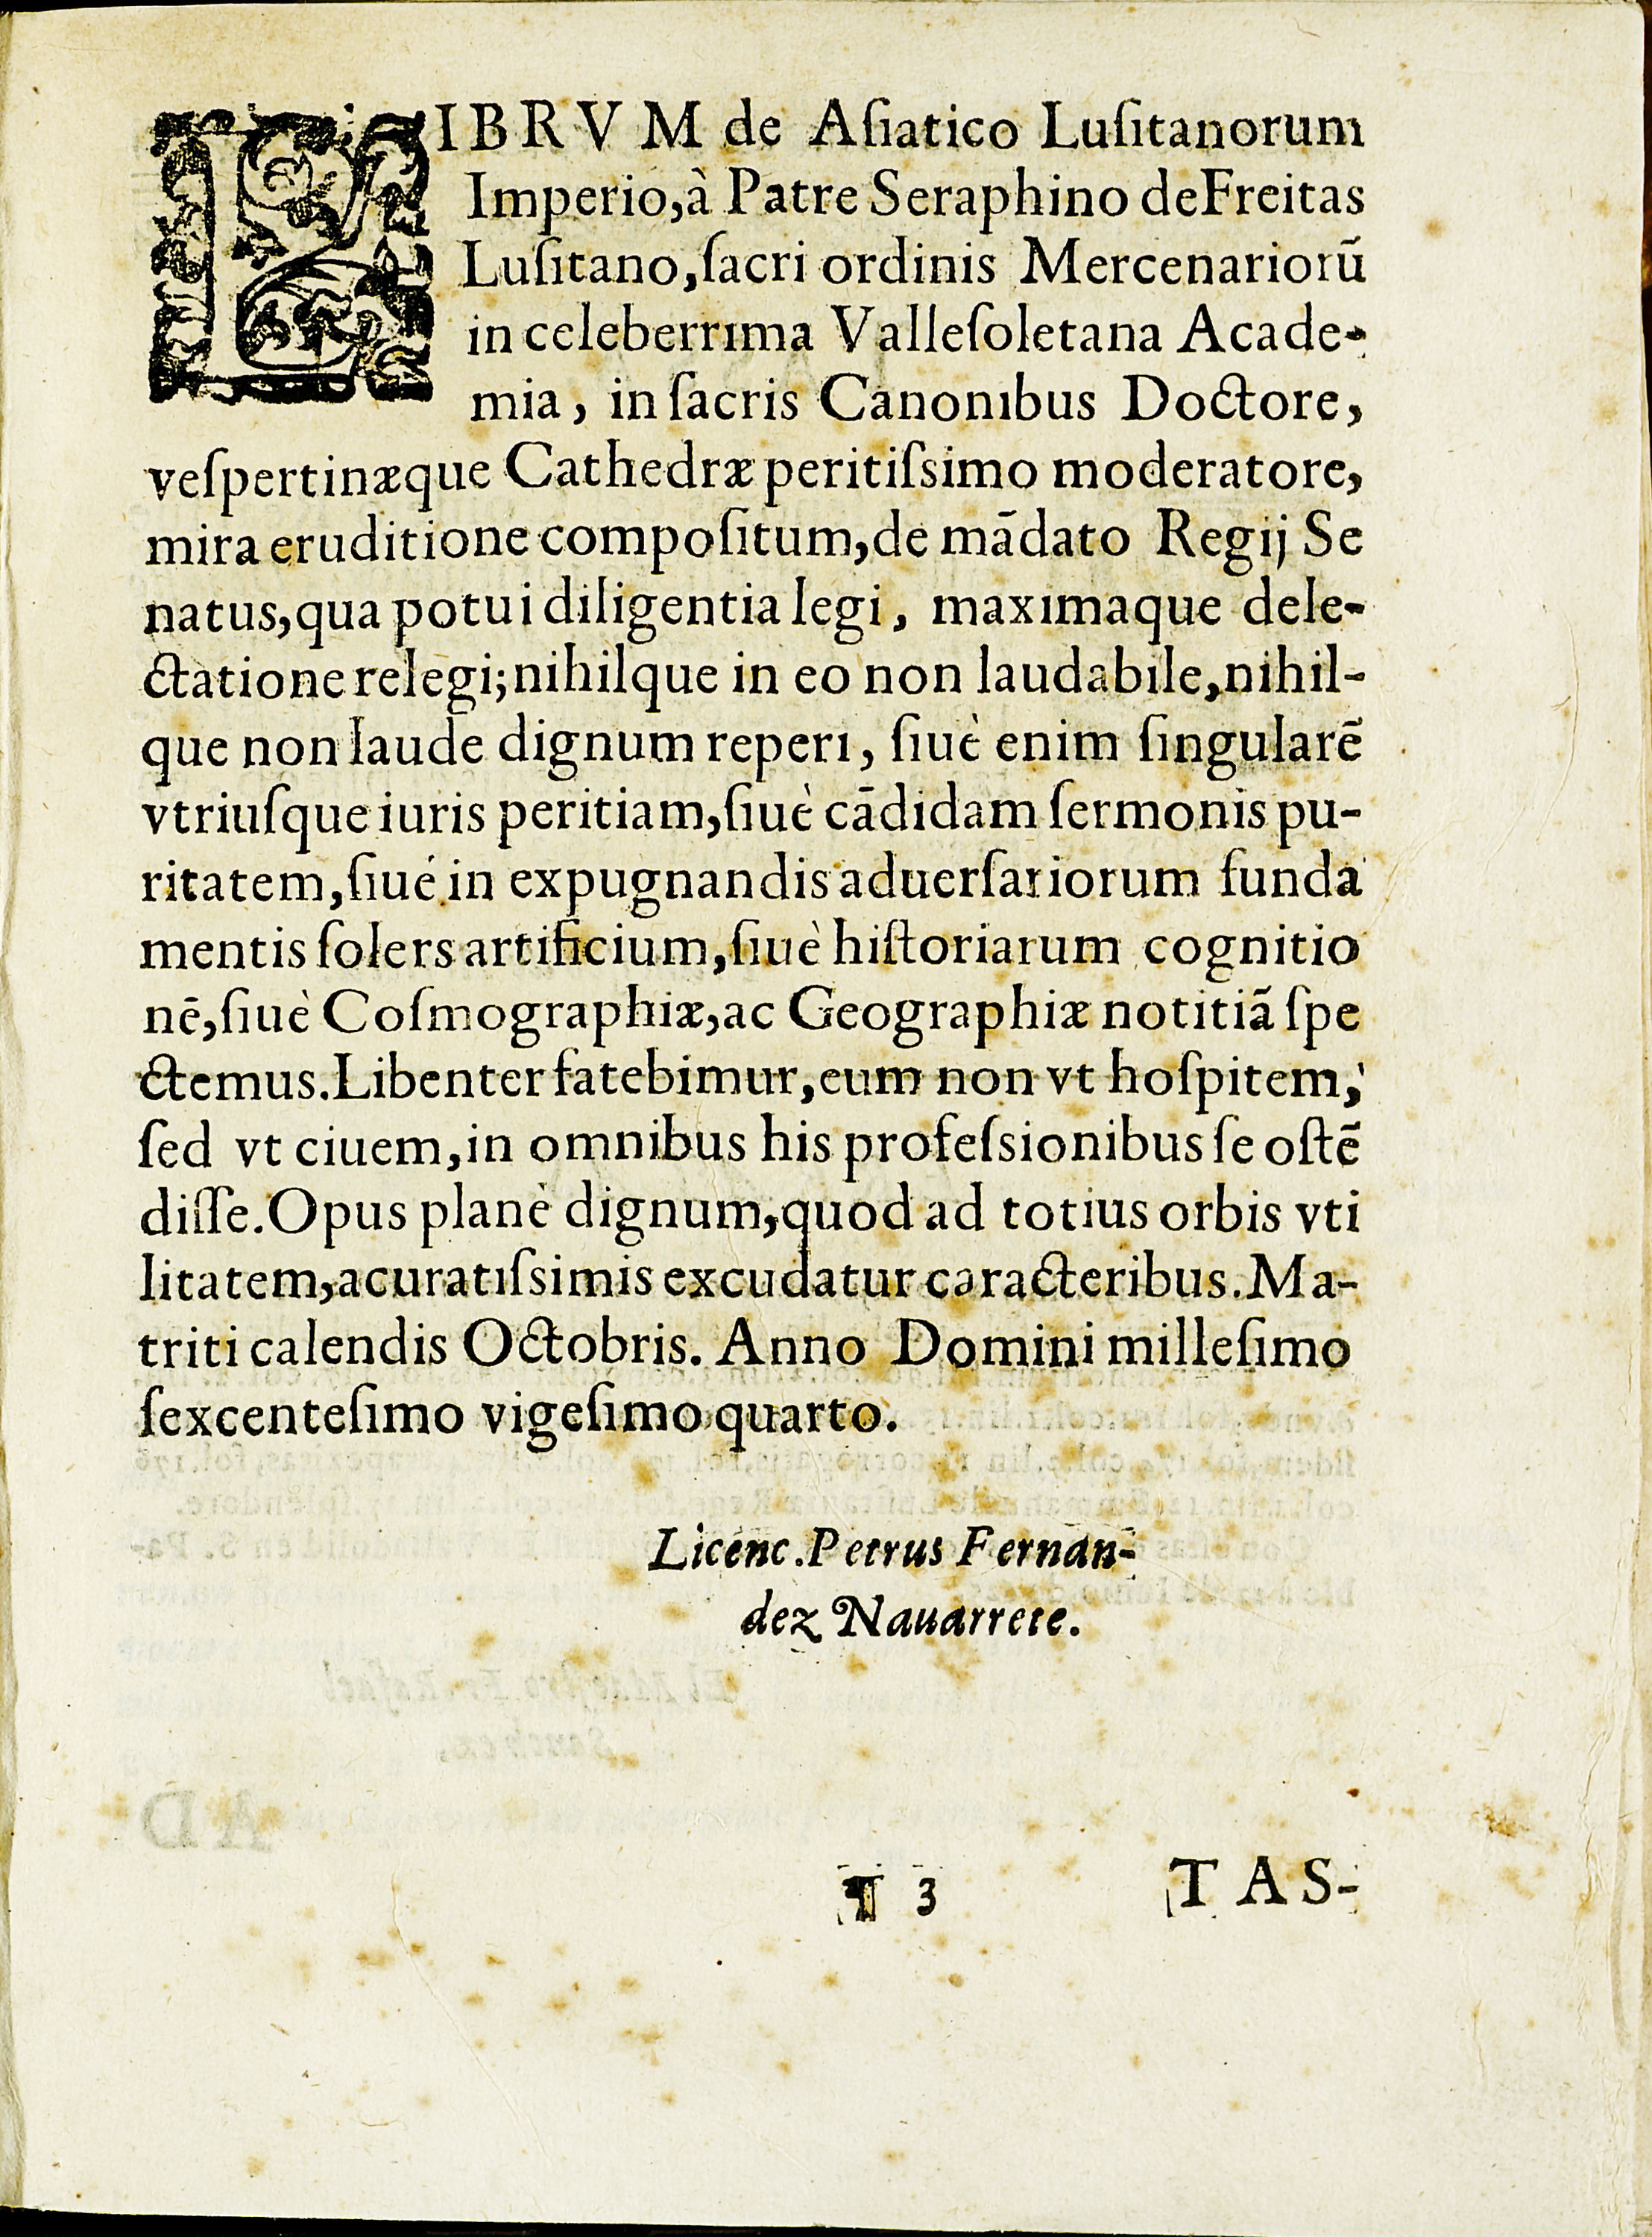 LIBRVM de Aſiatico Luſitanorum
Imperio,à Patre Seraphino deFreitas
Luſitano,ſacri ordinis Mercenariorũ
in celeberrima Valleſoletana Acade-
mia, in ſacris Canonibus Doctore,
veſpertinæque Cathedræ peritiſsimo moderatore,
mira eruditione compoſitum,de mādato Regij Se
natus,qua potui diligentia legi, maximaque dele-
ctatione relegi;nihilque in eo non laudabile,nihil-
que non laude dignum reperi, ſiuè enim ſingularē
vtriuſque iuris peritiam,ſiuè cādidam ſermonis pu-
ritatem,ſiué in expugnandis aduerſariorum funda
mentis ſolers artificium,ſiuè hiſtoriarum cognitio
nē,ſiuè Coſmographiæ,ac Geographiæ notitiā ſpe
ctemus.Libenter fatebimur,eum non vt hoſpitem,
ſed vt ciuem,in omnibus his profeſsionibus ſe oſtē
diſſe.Opus planè dignum,quod ad totius orbis vti
litatem,acuratiſsimis excudatur caracteribus.Ma-
triti calendis Octobris. Anno Domini milleſimo
ſexcenteſimo vigeſimo quarto.
Licenc.Petrus Fernan-
dez Nauarrete.
¶ 3 TAS-